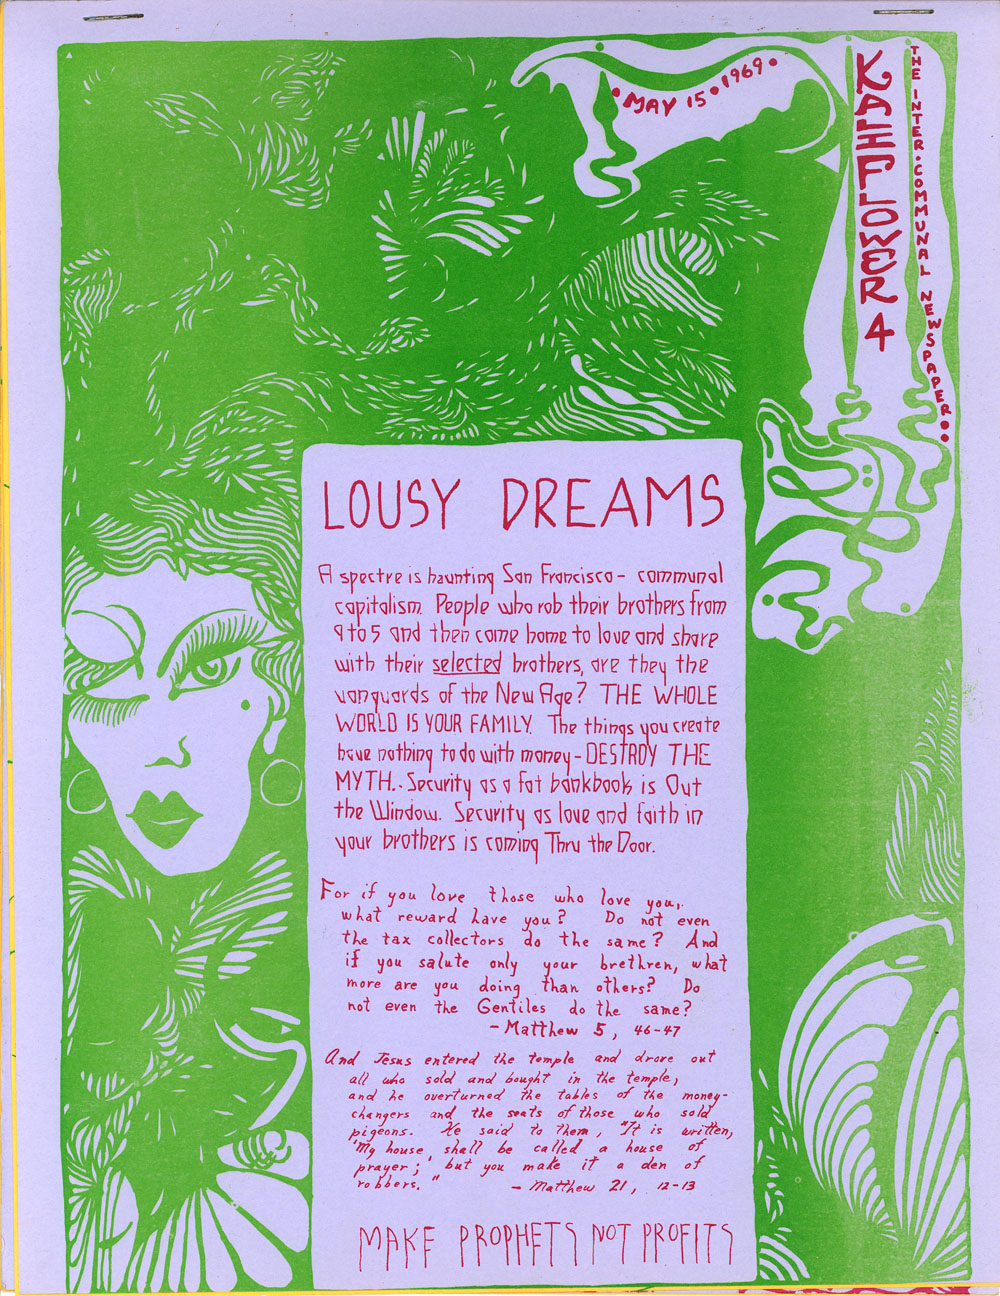 • MAY 15 • 1969 •
KALIFLOWER 4
THE INTER • COMMUNAL NEWSPAPER • •
LOUSY DREAMS
A spectre is haunting San Francisco - communal
capitalism. People who rob their brothers from
9 to 5 and then come home to love and share
with their selected brothers, are they the
vanguards of the New Age? THE WHOLE
WORLD IS YOUR FAMILY. The things you create
have nothing to do with money - DESTROY THE
MYTH. Security as a fat bankbook is Out
the Window. Security as love and faith in
your brothers is coming Thru the Door.
For if you love those who love you,
what reward have you? Do not even
the tax collectors do the same? And
if you salute only your brethren, what
more are you doing than others? Do
not even the Gentiles do the same?
- Matthew 5, 46-47
And Jesus entered the temple and drove out
all who sold and bought in the temple,
and he overturned the tables of the money-
changers and the seats of those who sold
pigeons. He said to them, "It is written,
'My house shall be called a house of
prayer'; but you make it a den of
robbers."
- Matthew 21, 12-13
MAKE PROPHETS NOT PROFITS